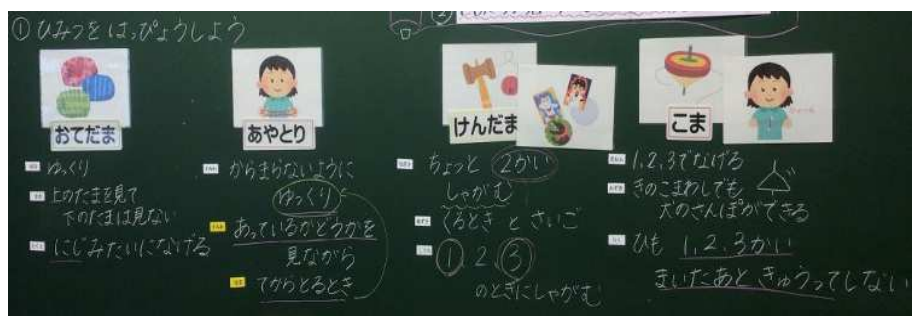 ① ひみつを はっぴょうしよう
おてだま
ゆっくり
上のたまを見て
下のたまは見ない
にじみたいになげる
あやとり
からまらないように
ゆっくり
あっているかどうかを
見ながら
てからとるとき
けんだま
ちょっと 2かい
しゃがむ
くるとき と さいご
① 2、③
のときにしゃがむ
こま
1、2、3でなげる
きのこまわしでも
犬のさんぽができる
ひも 1、2、3かい
まいたあと きゅうってしない